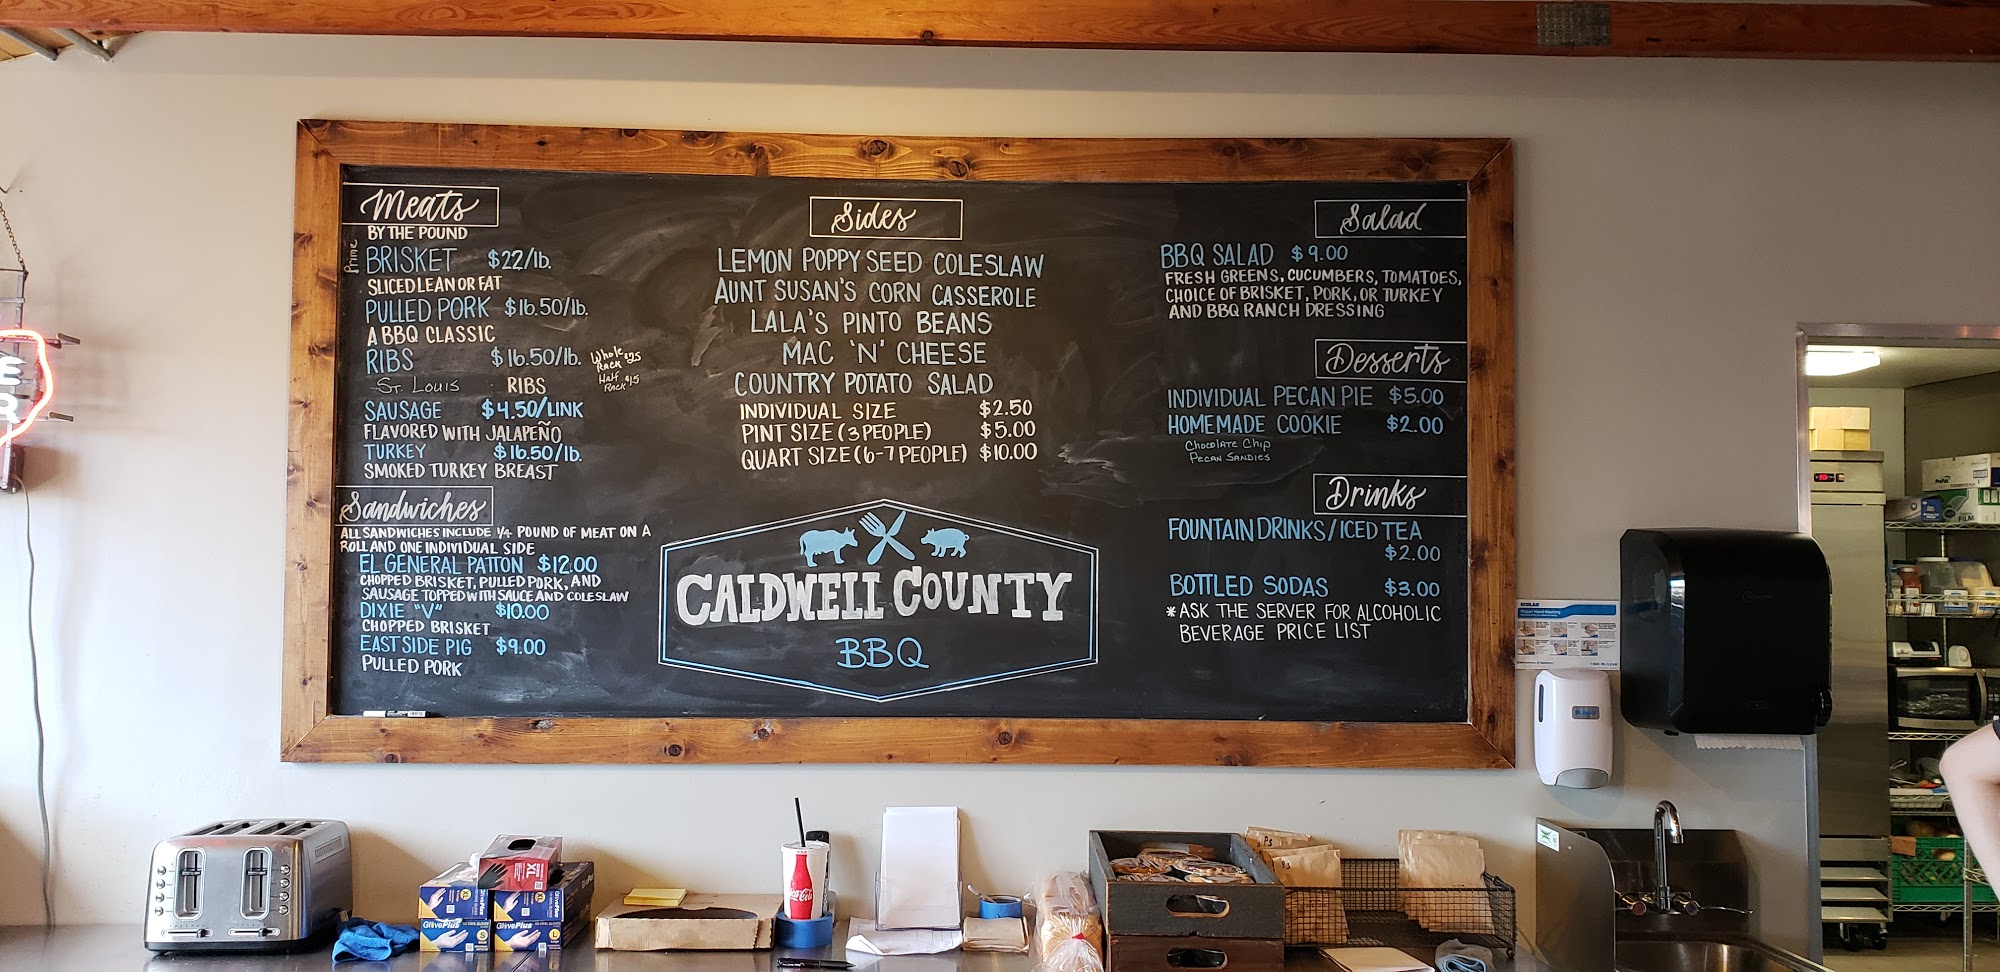 Meats
BY THE POUND
Prime
BRISKET $22/lb.
SLICED LEAN OR FAT
PULLED PORK $16.50/lb.
A BBQ CLASSIC
RIBS $16.50/lb.
Whole Rack $25
Half Rack $15
St. Louis RIBS
SAUSAGE $4.50/LINK
FLAVORED WITH JALAPEÑO
TURKEY $16.50/lb.
SMOKED TURKEY BREAST
Sandwiches
ALL SANDWICHES INCLUDE 1/4 POUND OF MEAT ON A
ROLL AND ONE INDIVIDUAL SIDE
EL GENERAL PATTON $12.00
CHOPPED BRISKET, PULLED PORK, AND
SAUSAGE TOPPED WITH SAUCE AND COLESLAW
DIXIE "V" $10.00
CHOPPED BRISKET
EAST SIDE PIG $9.00
PULLED PORK
Sides
LEMON POPPY SEED COLESLAW
AUNT SUSAN'S CORN CASSEROLE
LALA'S PINTO BEANS
MAC 'N' CHEESE
COUNTRY POTATO SALAD
INDIVIDUAL SIZE $2.50
PINT SIZE (3 PEOPLE) $5.00
QUART SIZE (6-7 PEOPLE) $10.00
CALDWELL COUNTY
BBQ
Salad
BBQ SALAD $9.00
FRESH GREENS, CUCUMBERS, TOMATOES,
CHOICE OF BRISKET, PORK, OR TURKEY
AND BBQ RANCH DRESSING
Desserts
INDIVIDUAL PECAN PIE $5.00
HOMEMADE COOKIE $2.00
Chocolate Chip
Pecan Sandies
Drinks
FOUNTAIN DRINKS/ICED TEA
$2.00
BOTTLED SODAS $3.00
*ASK THE SERVER FOR ALCOHOLIC
BEVERAGE PRICE LIST
ECOLAB
XL
GlovePlus
S
GlovePlus
L
Coca-Cola
PS
FILM